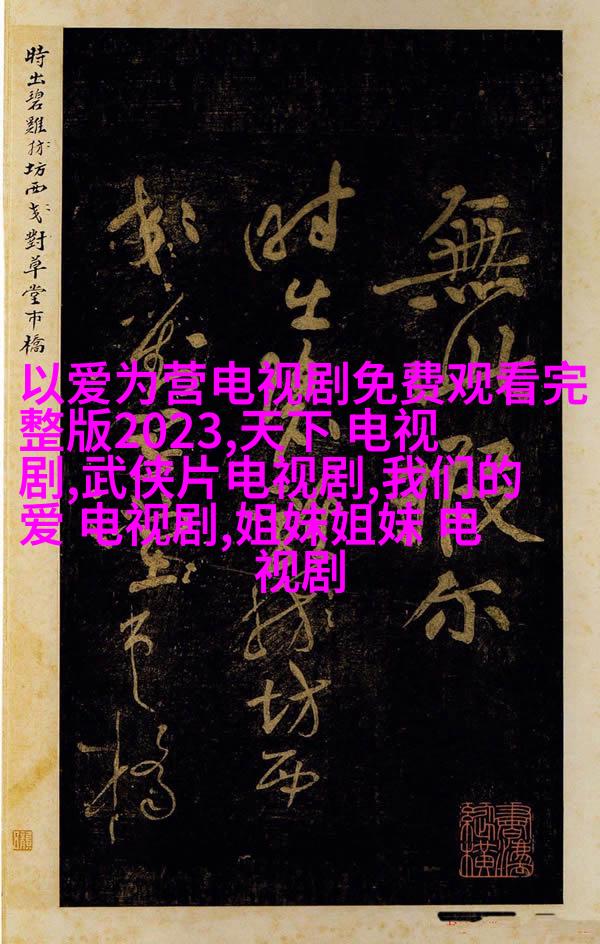 無此限尔
時出碧雞坊西
郊對草堂市橋
時出碧雞坊西郊對草堂市橋
以爱为营电视剧免费观看完
整版2023,天下 电视
剧,武侠片电视剧,我们的
爱 电视剧,姐妹姐妹 电
视剧